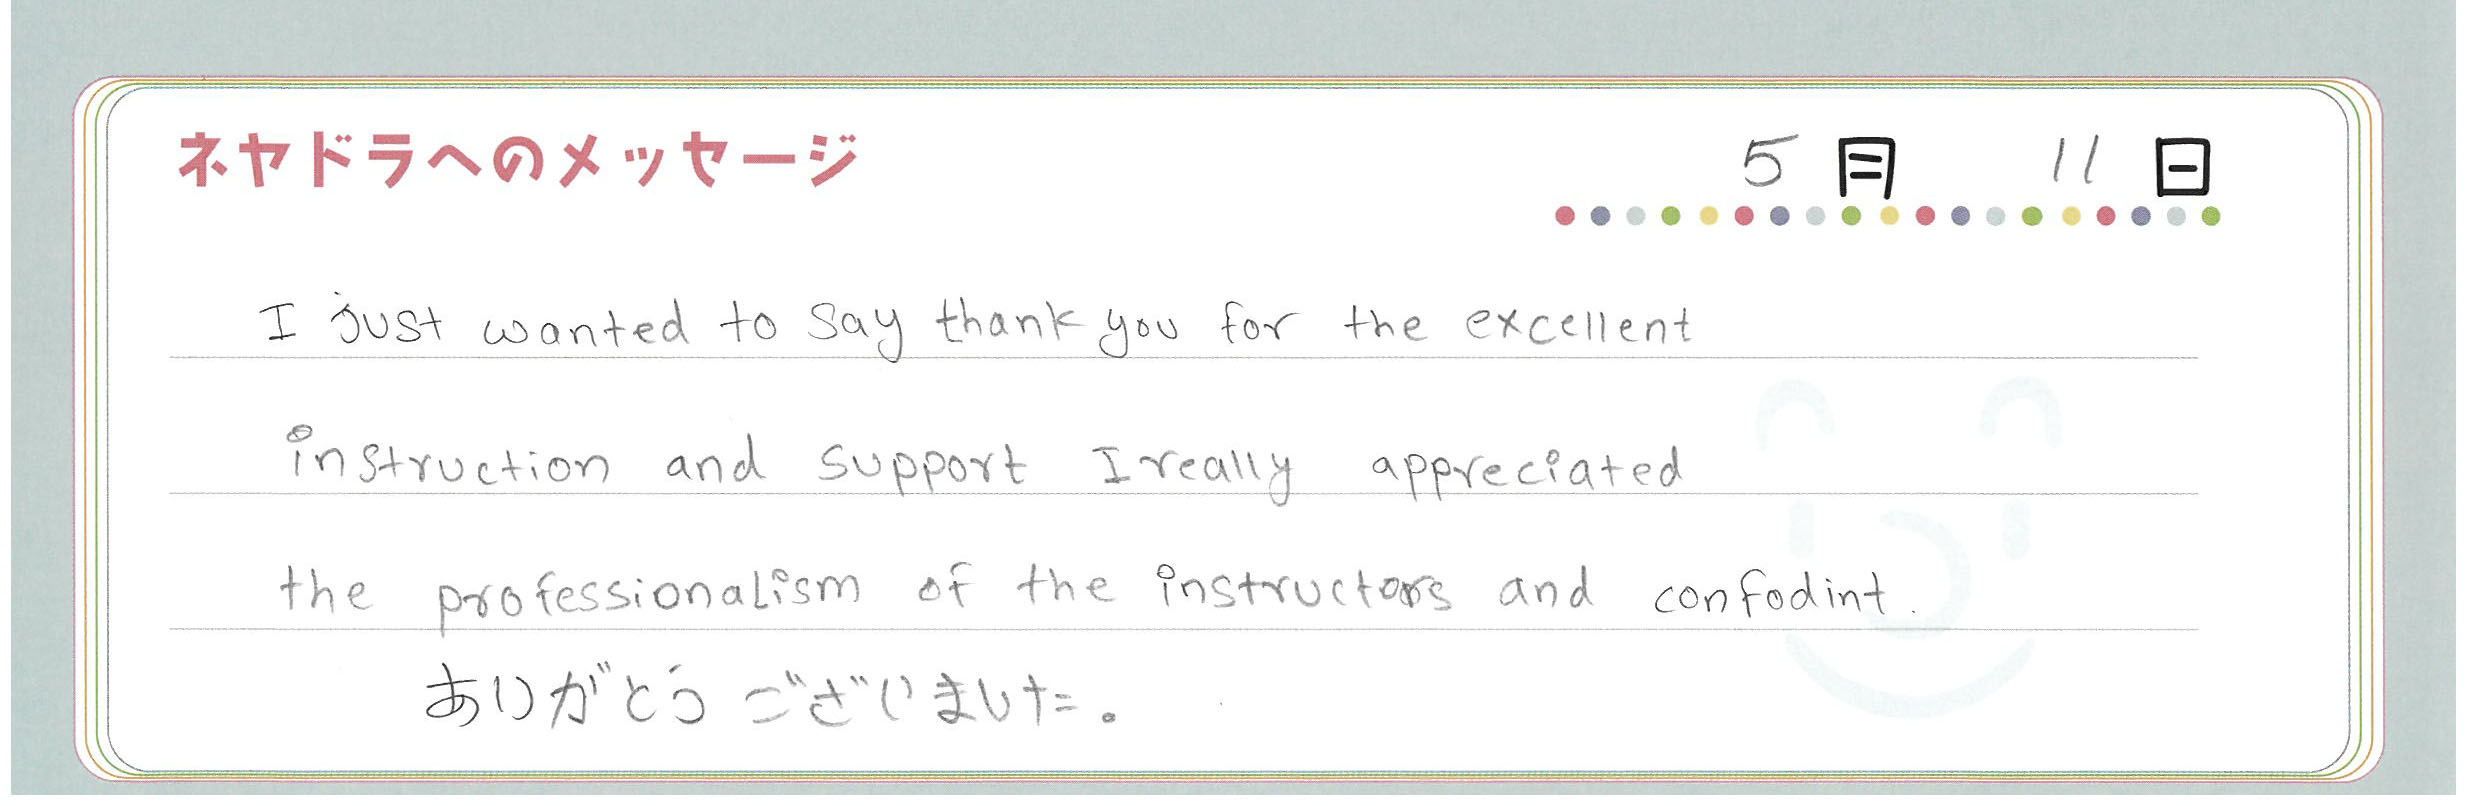 ネヤドラへのメッセージ
5月 11日
I just wanted to say thank you for the excellent
instruction and support I really appreciated
the professionalism of the instructors and confodint.
ありがとうございました。